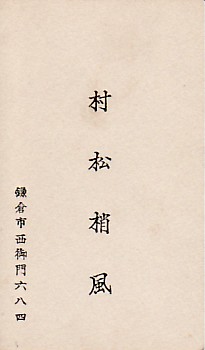 村松梢風
鎌倉市西御門六八四